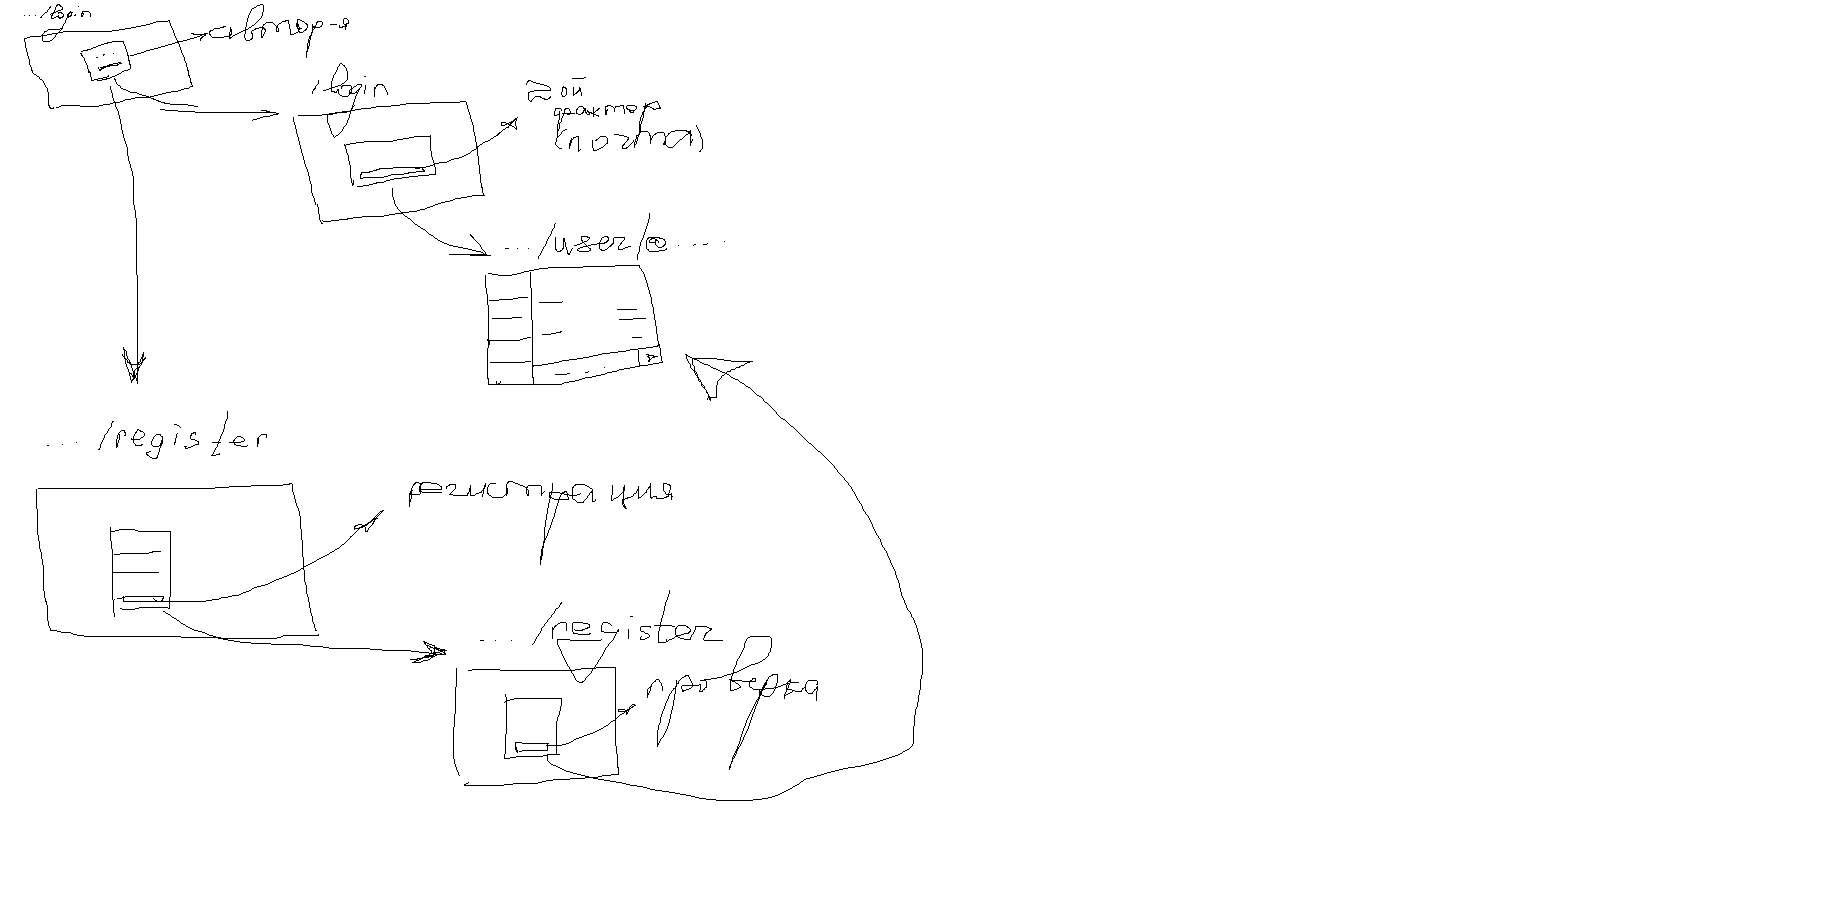 .../login
автор-я
/login
2ой
фактор
(почта)
.../user/@.....
.../register
регистрация
.../register
проверка